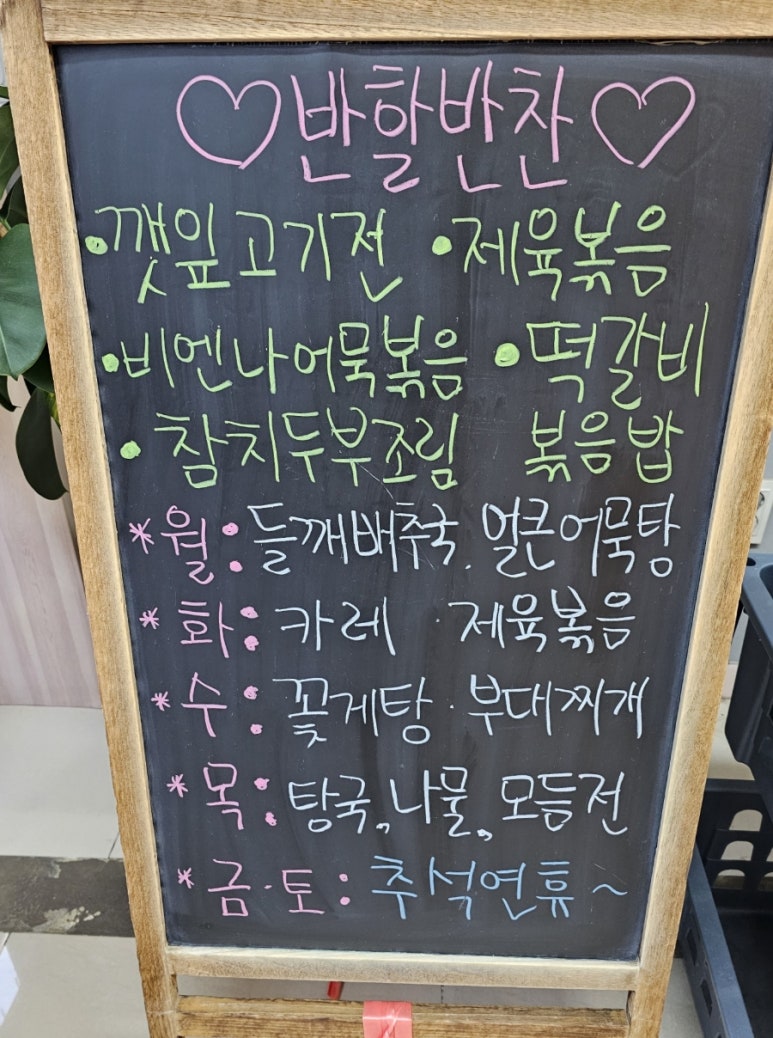 ♡반할반찬♡
•깻잎고기전 •제육볶음
•비엔나어묵볶음 •떡갈비
•참치두부조림 볶음밥
*월: 들깨배추국. 얼큰어묵탕
*화: 카레 · 제육볶음
*수: 꽃게탕 · 부대찌개
*목: 탕국, 나물, 모듬전
*금·토: 추석연휴~